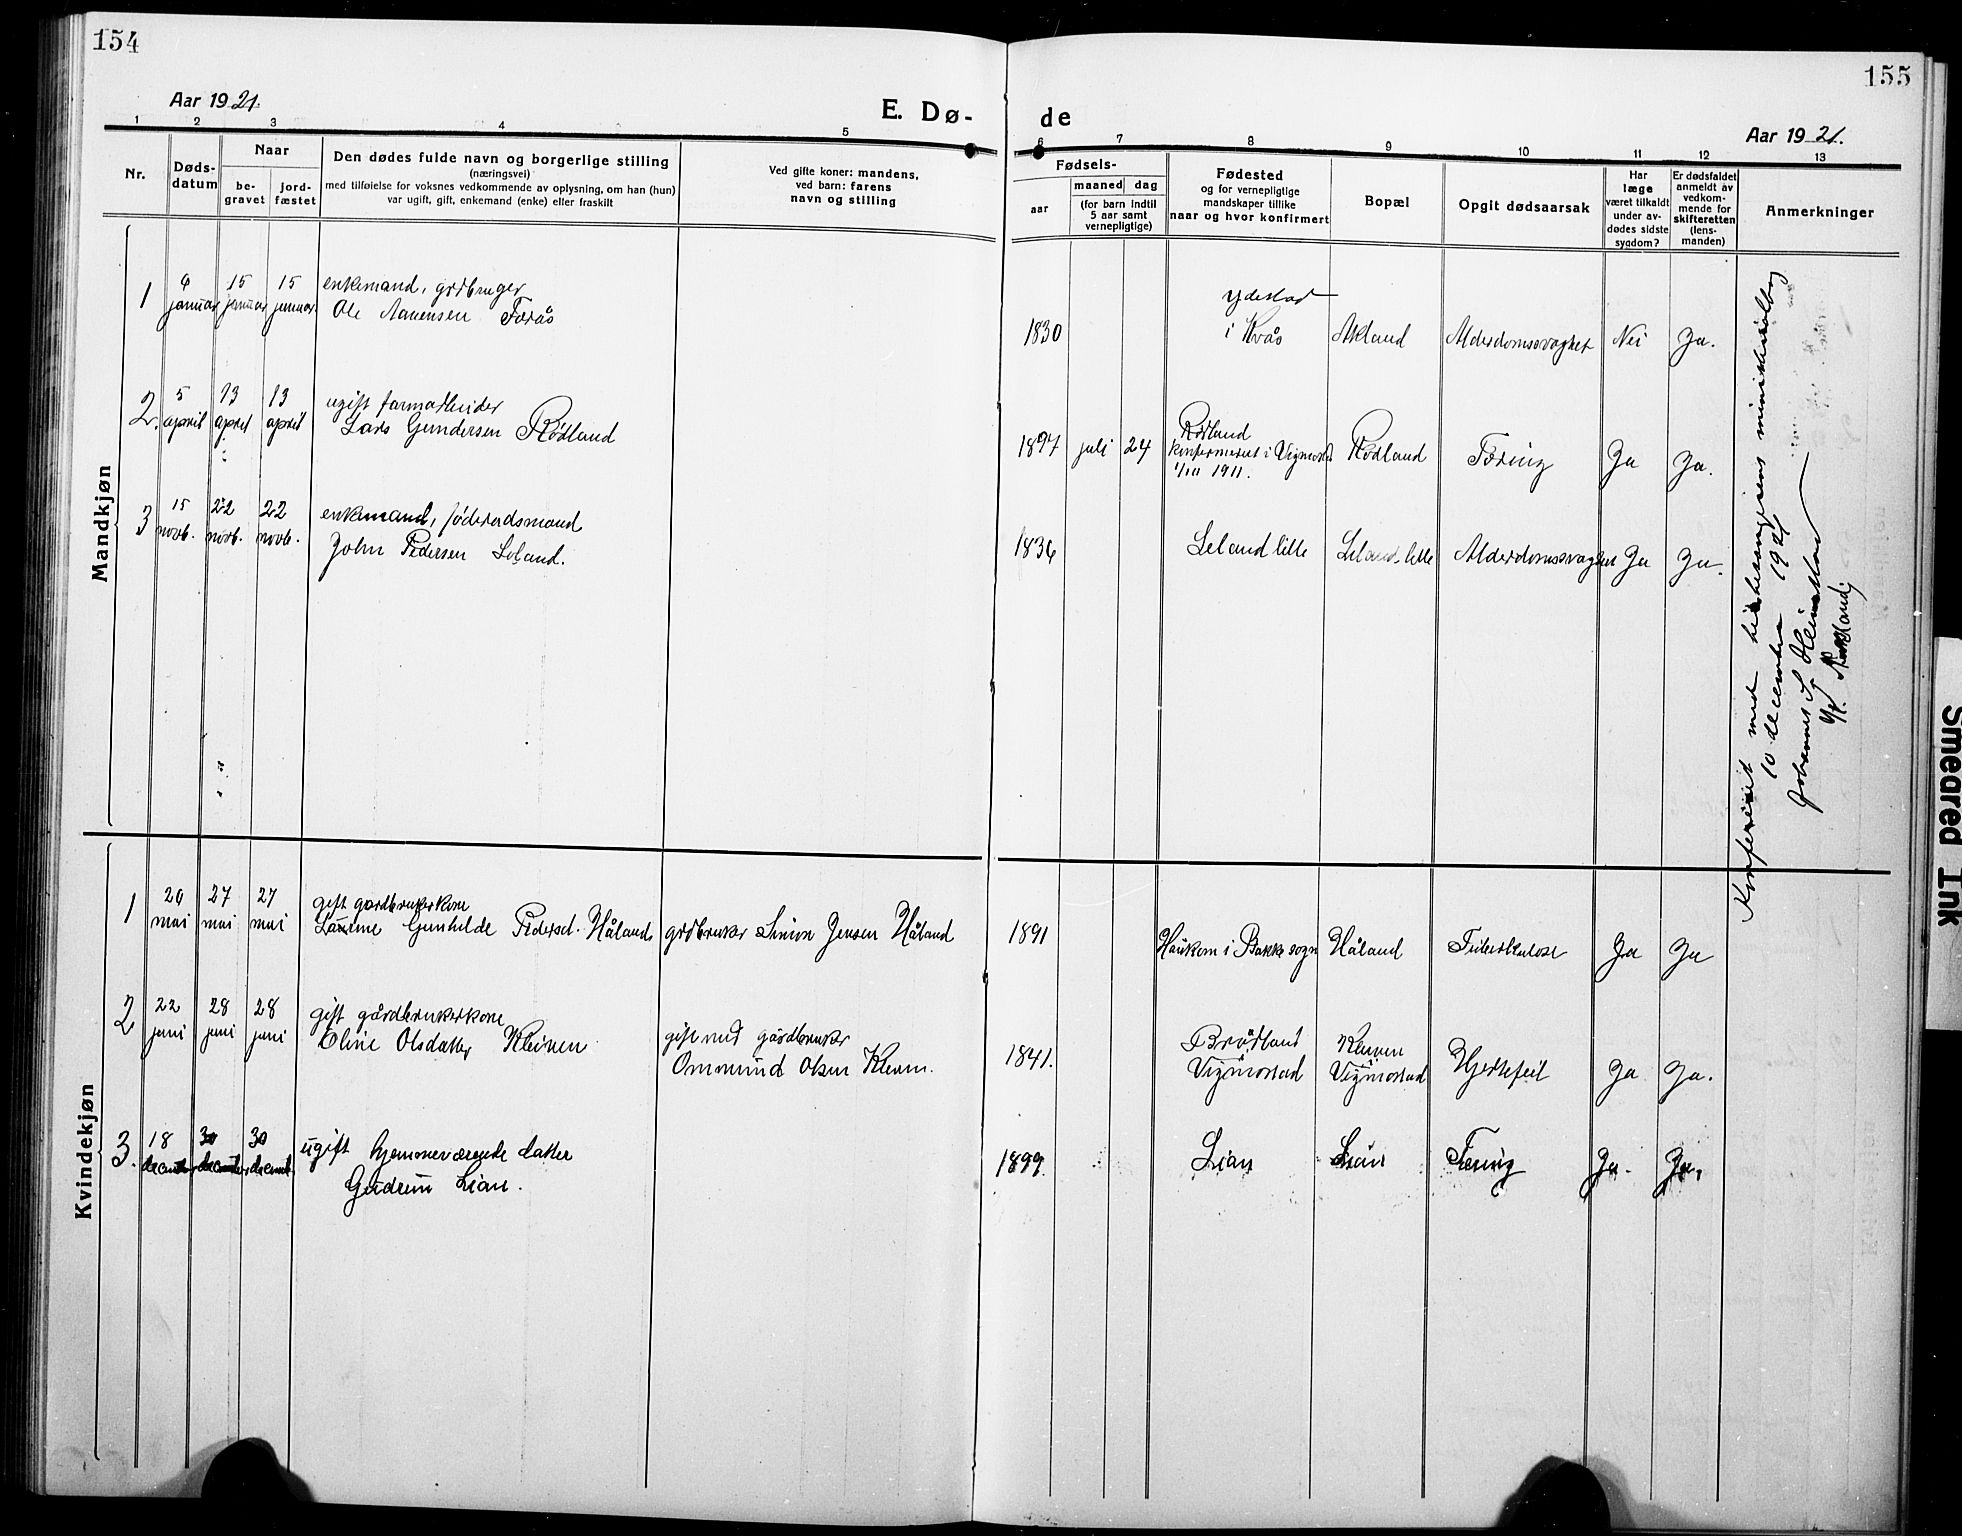 154
155
Aar 1921.
E. Dø-
de
Aar 1921.
1 2 3 4 5
6 7 8 9 10 11 12 13
Nr.
Døds-
datum
Naar
be-
gravet
jord-
fæstet
Den dødes fulde navn og borgerlige stilling
(næringsvei)
med tilføielse for voksnes vedkommende av oplysning, om han (hun)
var ugift, gift, enkemand (enke) eller fraskilt
Ved gifte koner: mandens,
ved barn: farens
navn og stilling
Fødsels-
aar
maaned
dag
(for barn indtil
5 aar samt
vernepligtige)
Fødested
og for vernepligtige
mandskaper tillike
naar og hvor konfirmert
Bopæl
Opgit dødsaarsak
Har
læge
været tilkaldt
under av-
dødes sidste
sygdom?
Er dødsfaldet
anmeldt av
vedkom-
mende for
skifteretten
(lens-
manden)
Anmerkninger
Mandkjøn
1
januar
15
januar
15
januar
enkemand, grdbruger
Ole
1830
i Kvås
Nei
Ja.
2.
5
april
13
april
13
april
ugift farmarbeider
Lars Gundersen Rødland
1897
juli
24
Rødland
konfirmeret i Vigmostad
1911.
Rødland
Tæring
Ja
Ja.
3
15
novb.
22
novb.
22
novb.
enkemand, føderaadsmand
John Pedersen Leland.
1836
Leland lille
Leland lille
Alderdomssvaghet
Ja
Ja.
Konfereret med
10 december 1921
Kvindekjøn
1
20
mai
27
mai
27
mai
gift gardbrukerkone
Gunhilde Pedersd. Håland
grdbruker Simon Jensen Håland
1891
Haukom i Bakke sogn
Håland
Tuberkulose
Ja
Ja
2
22
juni
28
juni
28
juni
gift gårdbrukerkone
Oline Olsdatter Kleiven
gift med gårdbruker
Ommund Olsen Kleven.
1841.
Vigmostad
Vigmostad
Hjertefeil
Ja
Ja.
3.
18
30
30
ugift hjemmeværende datter
Gudrun Lian.
1899
Lian
Lian
Tæring
Ja.
Ja.
Smeared Ink